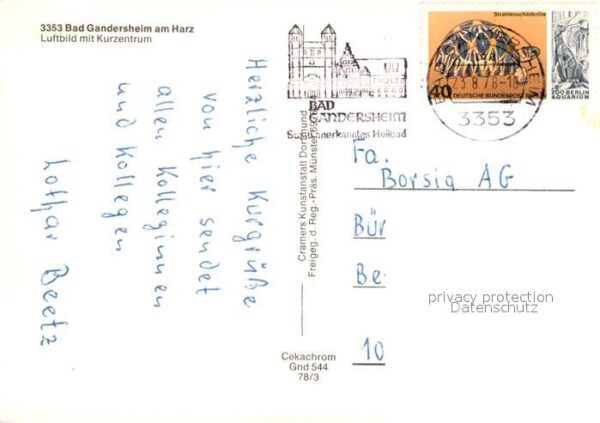 3353 Bad Gandersheim am Harz
Luftbild mit Kurzentrum
Herzliche Kurgrüße
von hier sendet
allen Kolleginnen
und Kollegen
Lothar Beetz
Cramers Kunstanstalt Dortmund
Freigeg. d. Reg.-Präs. Münster
Cekachrom
Gnd 544
78/3
BAD
GANDERSHEIM
anerkanntes Heilbad
Strahlenschildkröte
40
DEUTSCHE BUNDESPOST
ZOO BERLIN
AQUARIUM
3353
Fa.
Borsig AG
Bür
Be
10
privacy protection
Datenschutz